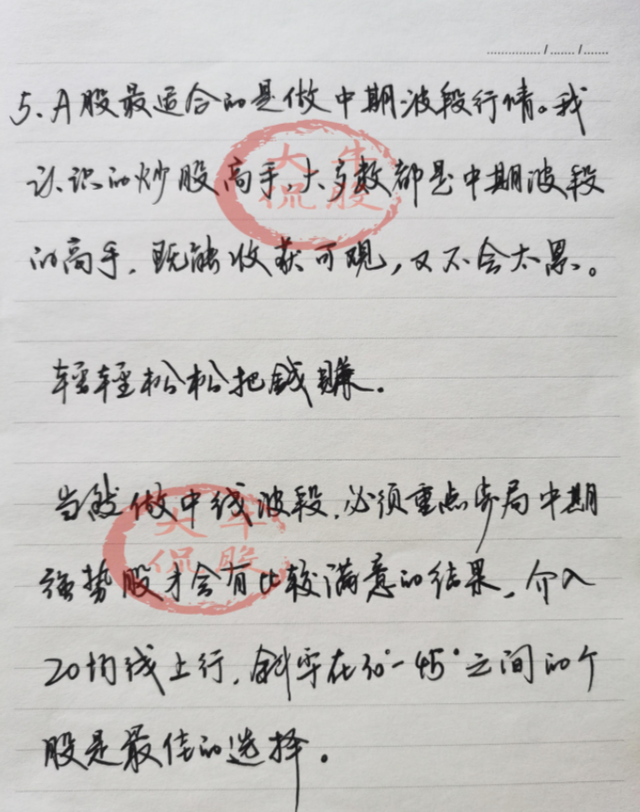 5、A股最适合的是做中期波段行情。我
认识的炒股高手,大多数都是中期波段
的高手,既能收获可观,又不会太累。
轻轻松松把钱赚。
当然做中线波段,必须重点布局中期
强势股才会有比较满意的结果,介入
20均线上行,斜率在30°-45°之间的个
股是最佳的选择。
大牛
侃股
大牛
侃股